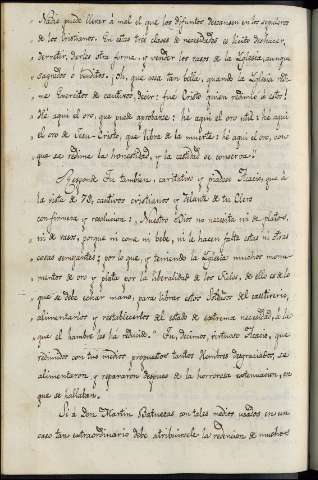 Nadie puede llevar á mal el que los difuntos descansen en los sepulcros
de los Cristianos. En estas tres clases de necesidades es licito deshacer,
derretir, darles otra forma, y vender los vasos de la Iglesia, aunque
sagrados ó benditos. Oh, que cosa tan bella, quando la Iglesia redi-
me Exercitos de cautivos, decir: fue Cristo quien redimió á estos!
Hé aqui el oro, que puede aprobarse: hé aqui el oro util: hé aqui
el oro de Jesu-Cristo, que libra de la muerte: hé aqui el oro, con
que se redime la honestidad, y la castidad se conserva!
Responde Tu tambien, caritativo y piadoso Acacio, que á
la vista de 70, cautivos cristianos y delante de tu Clero
confirmera y resolucion: Nuestro Dios no necesita ni de platos,
ni de vasos, porque ni come ni bebe, ni le hacen falta estas ni otras
cosas semejantes; por lo que, y teniendo la Iglesia muchos monu-
mentos de oro y plata por la liberalidad de los Fieles, de ello es de lo
que se debe echar mano, para librar estos Infelices del cautiverio,
alimentarlos y restablecerlos del estado de extrema necesidad, á la
que el hambre los há reducido." Tu, decimos, virtuoso Acacio, que
redimidos con tus medios propuestos tantos Hombres desgraciados, se
alimentaron y repararon despues de la horrorosa extenuacion, en
que se hallaban.
Si á Don Martin Batuecas con tales medios usados en un
caso tan extraordinario debe atribuirsele la redencion de muchos